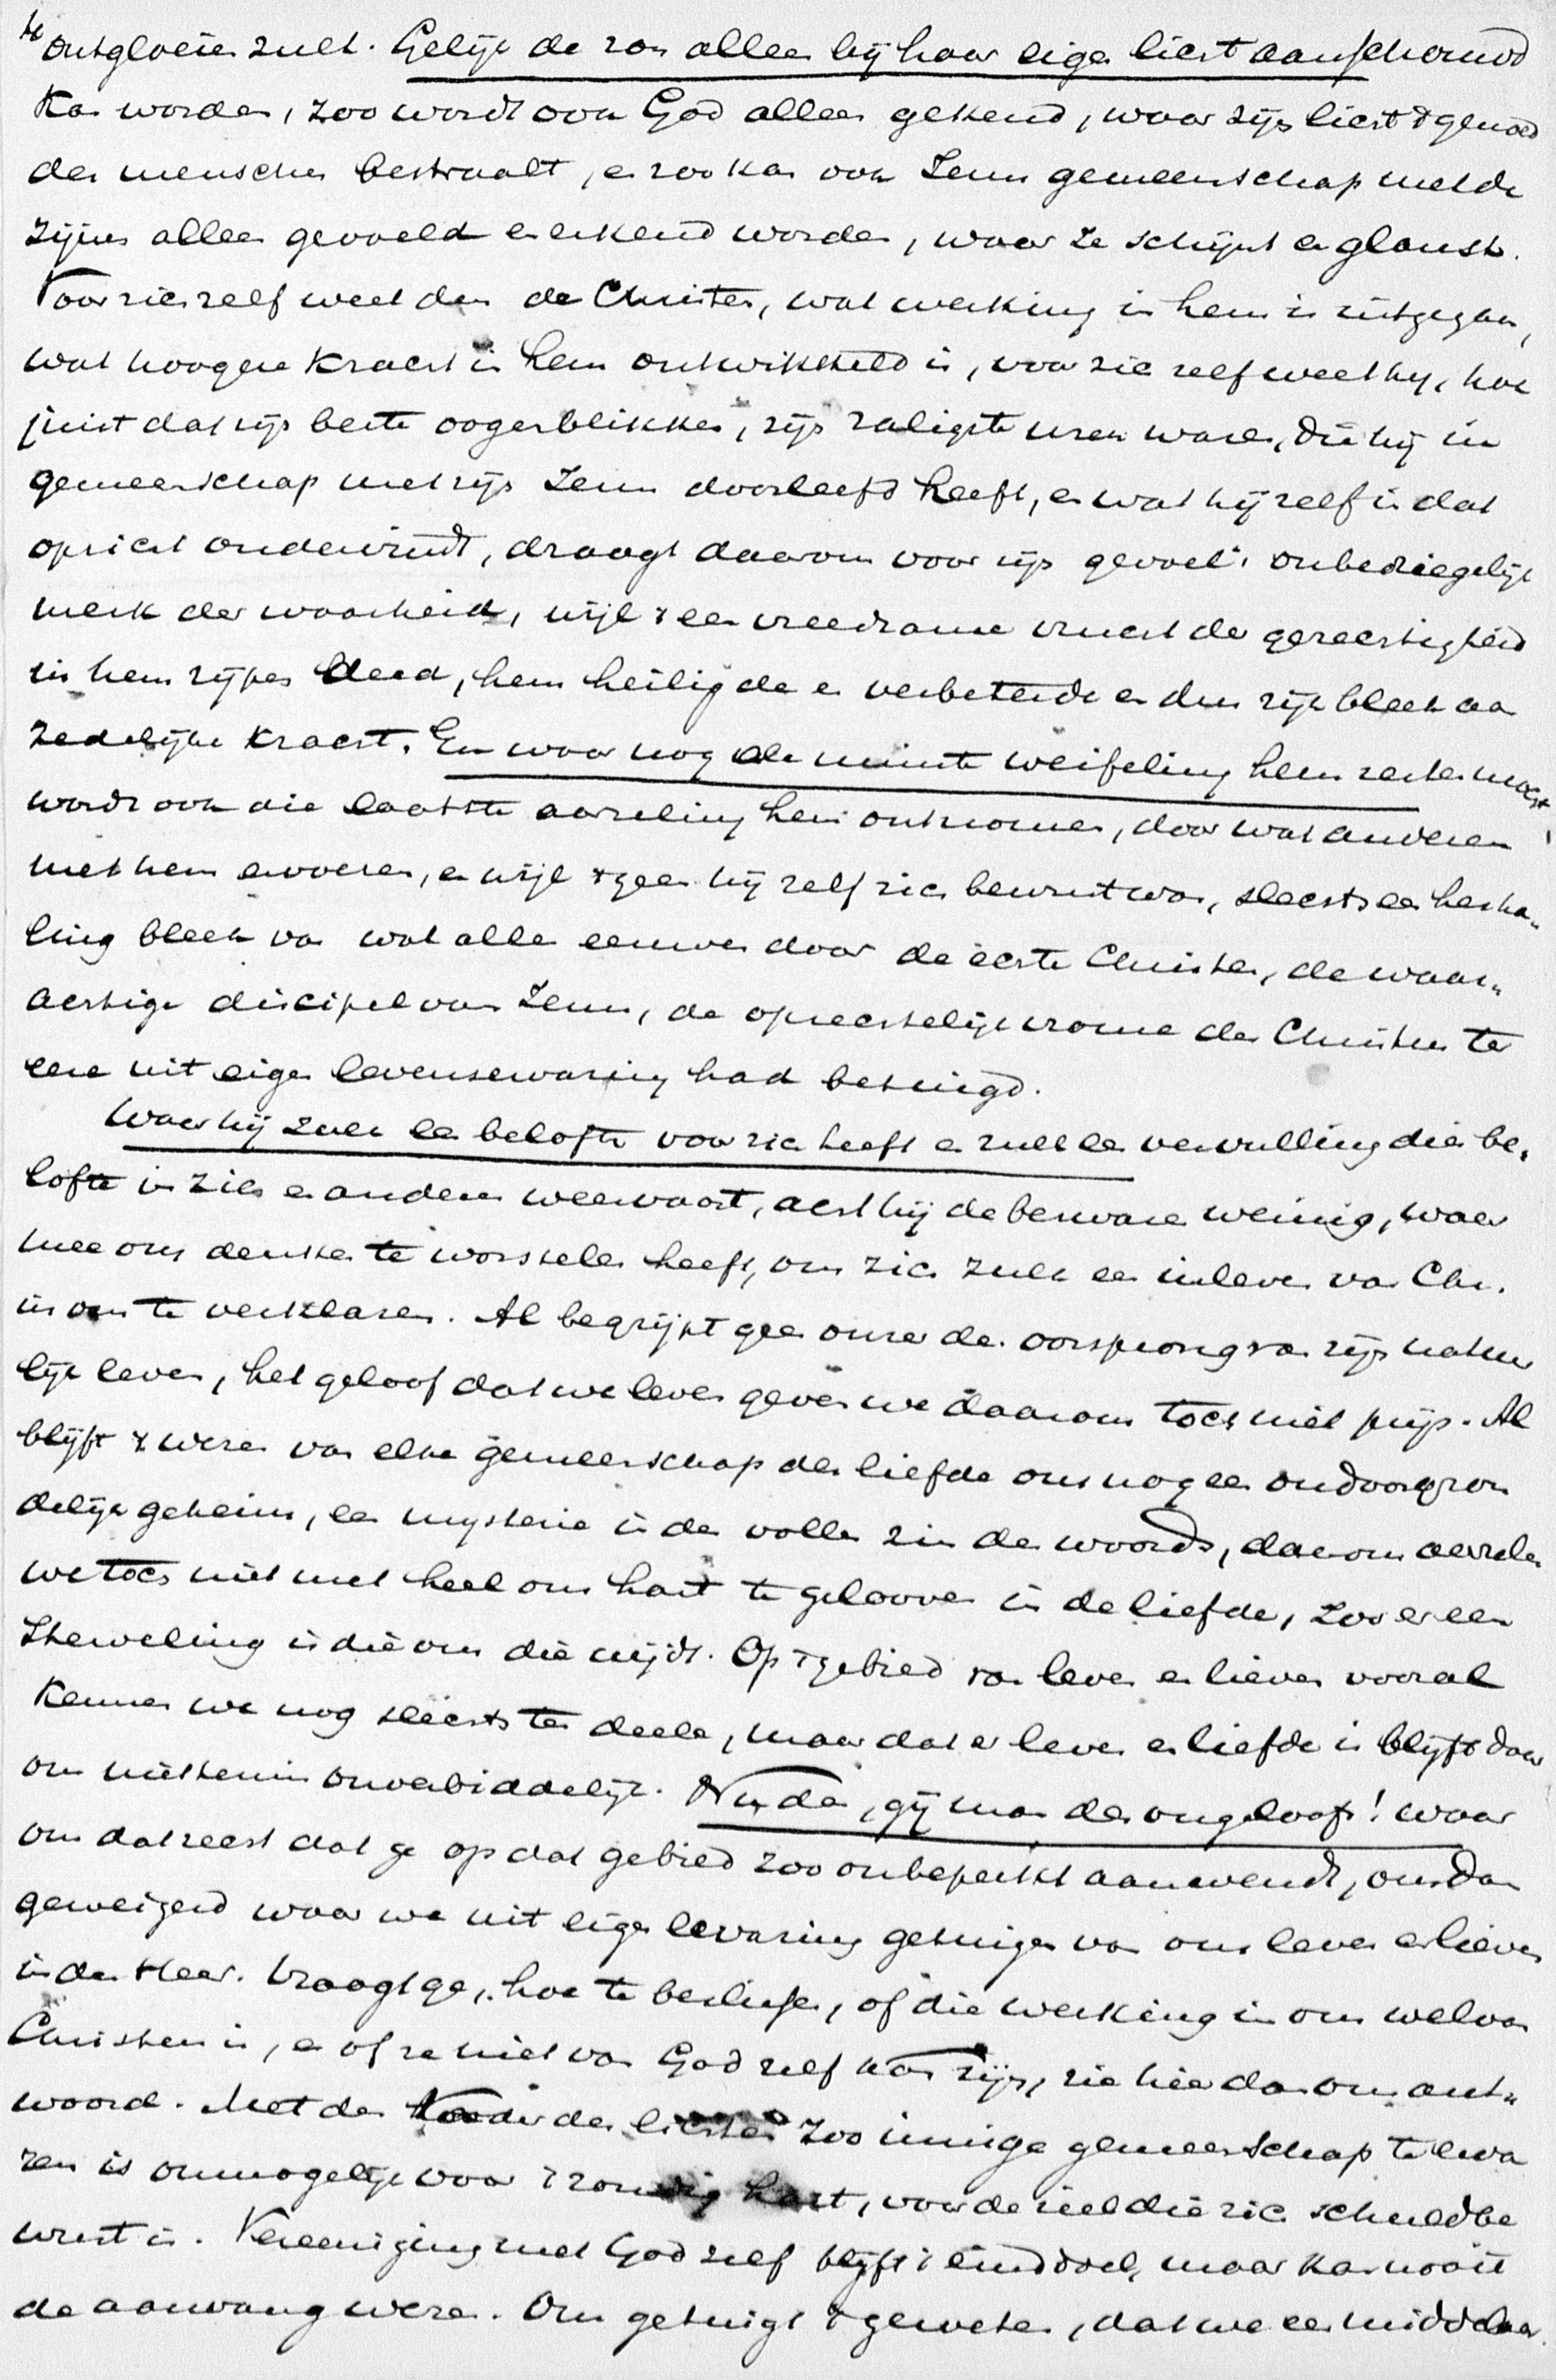 te ontgloeien zult. Gelijk de zon alleen bij haar eigen licht aanschouwd
kan worden, zoo wordt ook God alleen gekend, waar zijn licht 't gemoed
der menschen bestraalt, en zoo kan ook Jezus gemeenschap met de
zijnen alleen gevoeld en erkend worden, waar ze schijnt en glanst.
Voor zich zelf weet dan de Christen, wat werking in hem is uitgegaan,
wat hoogere kracht in hem ontwikkeld is, voor zich zelf weet hij, hoe
juist dat zijn beste oogenblikken, zijn zaligste uren waren, die hij in
gemeenschap met zijn Jezus doorleefd heeft, en wat hij zelf in dat
opzicht ondervindt, draagt daarom voor zijn gevoel 't onbedriegelijk
merk der waarheid, wijl 't een vreedzame vrucht der gerechtigheid
in hem rijpen deed, hem heiligde en verbeterde en dus rijk bleek aan
zedelijke kracht. En waar nog de minste weifeling hem resten mocht,
wordt ook die laatste aarzeling hem ontnomen, door wat anderen
met hem ervoeren, en wijl 't geen hij zelf zich bewust was, slechts een herha-
ling bleek van wat alle eeuwen door de echte Christen, de waar-
achtige discipel van Jezus, de oprechtelijk vrome den Christus ter
eere uit eigen levenservaring had betuigd.
Waar hij zulk een belofte voor zich heeft en zulk een vervulling dier be-
lofte in zich en anderen weervaart, acht hij de bezwaren weinig, waar
mee ons denken te worstelen heeft, om zich zulk een inleven van Chr.
in ons te verklaren. Al begrijpt geen onzer den oorsprong van zijn natuur
lijk leven, het geloof dat we leven geven we daarom toch niet prijs. Al
blijft 't wezen van elke gemeenschap der liefde ons nog een ondoorgron
delijk geheim, een mysterie in den vollen zin des woords, daarom aarzelen
we toch niet met heel ons hart te gelooven in de liefde, zoo er een
sterveling is die ons die wijdt. Op 't gebied van leven en lieven vooral
kennen we nog slechts ten deele, maar dat er leven en liefde is blijft daar
om niettemin onverbiddelijk. Nu dan, gij man des ongeloofs! waar
om dat recht dat ge op dat gebied zoo onbeperkt aanwendt, ons dan
geweigerd waar we uit eigen ervaring getuigen van ons leven en lieven
in den Heer. Vraagt ge, hoe te beslissen, of die werking in ons wel van
Christus is, en of ze niet van God zelf kan zijn, zie hier dan ons ant-
woord. Met den Vader der lichten zoo innige gemeenschap te erva
ren is onmogelijk voor 't zondig hart, voor de ziel die zich schuldbe
wust is. Vereeniging met God zelf blijft 't einddoel, maar kan nooit
de aanvang wezen. Ons getuigt 't geweten, dat we een middelaar